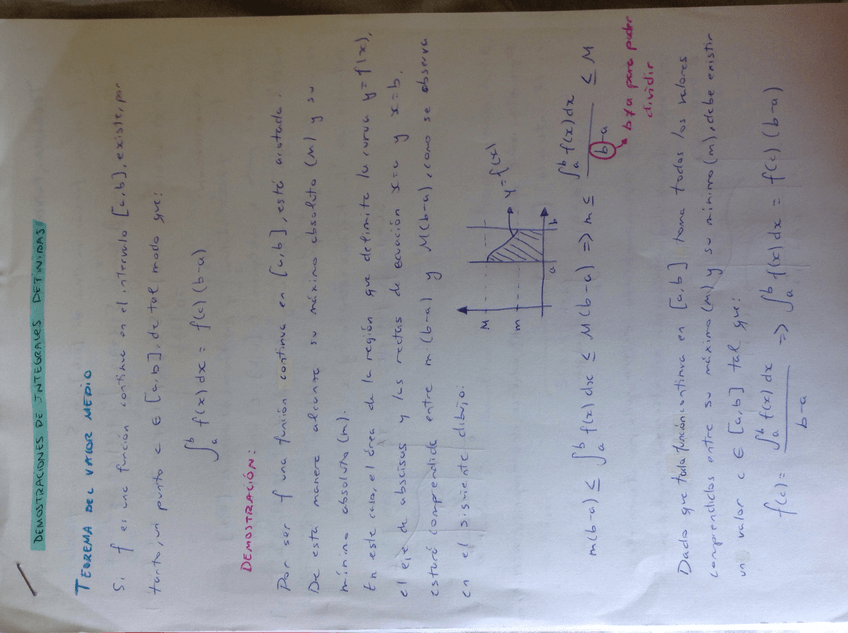 DEMOSTRACIONES DE INTEGRALES DEFINIDAS
TEOREMA DEL VALOR MEDIO
Si f es una función continua en el intervalo [a,b], existe, por
tanto, un punto c ∈ [a,b], de tal modo que:
∫_a^b f(x)dx = f(c)(b-a)
DEMOSTRACIÓN:
Por ser f una función continua en [a,b], está acotada.
De esta manera alcanza su máximo absoluto (M) y su
mínimo absoluto (m).
En este caso, el área de la región que delimita la curva y=f(x),
el eje de abscisas y las rectas de ecuación x=a y x=b.
estará comprendida entre m(b-a) y M(b-a), como se observa
en el siguiente dibujo:
M
m
y=f(x)
a
b
m(b-a) ≤ ∫_a^b f(x)dx ≤ M(b-a) => m ≤ ∫_a^b f(x)dx / b-a ≤ M
b≠a para poder
dividir
Dado que toda función continua en [a,b] toma todos los valores
comprendidos entre su máximo (M) y su mínimo (m), debe existir
un valor c ∈ [a,b] tal que:
f(c) = ∫_a^b f(x)dx / b-a => ∫_a^b f(x)dx = f(c)(b-a)